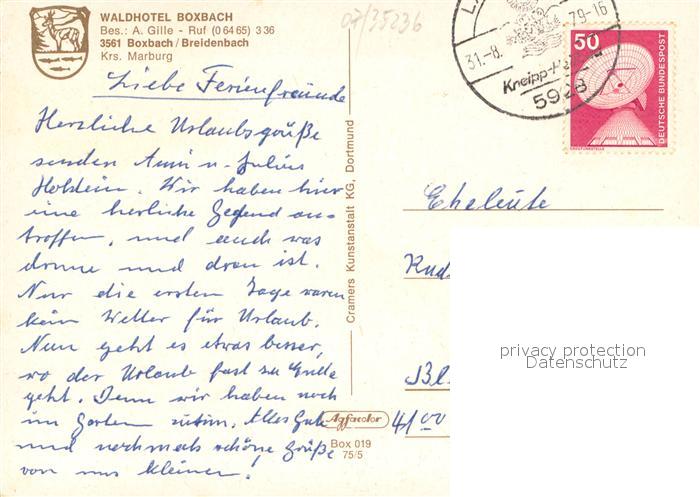 WALDHOTEL BOXBACH
Bes.: A. Gille - Ruf (0 64 65) 3 36
3561 Boxbach / Breidenbach
Krs. Marburg
07/35236
31.-8. 79-16
Kneipp-
5928
50
DEUTSCHE BUNDESPOST
ERDFUNKSTELLE
Liebe Ferienfreunde
Herzliche Urlaubsgrüße
senden Anni u. Julius
Holstein. Wir haben hier
eine herrliche Gegend ange-
troffen, und auch was
drum und dran ist.
Nur die ersten Tage waren
kein Wetter für Urlaub.
Nun geht es etwas besser,
wo der Urlaub fast zu Ende
geht. Denn wir haben noch
im Garten zutun. Alles Gute
und nochmals schöne Grüße
von uns kleinen!
Cramers Kunstanstalt KG, Dortmund
Agfacolor
Box 019
75/5
Eheleute
Rud
Bl
41/00
privacy protection
Datenschutz